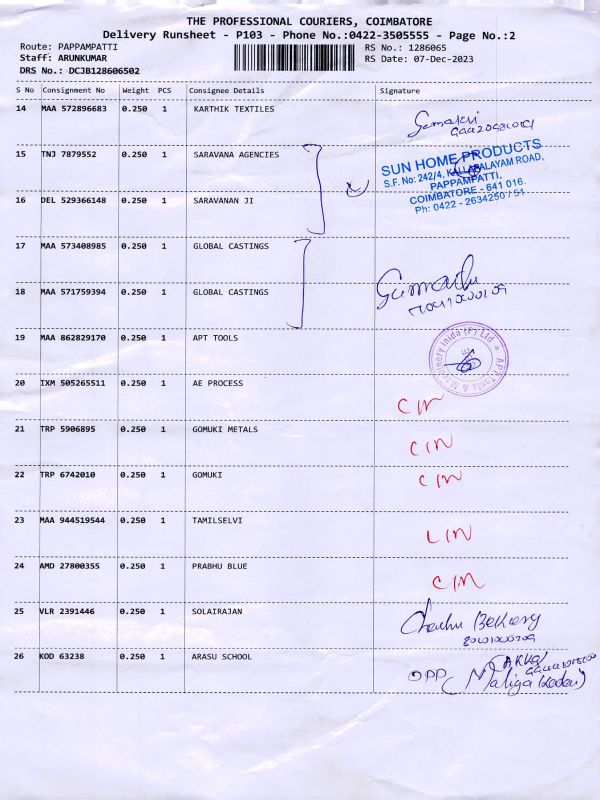 THE PROFESSIONAL COURIERS, COIMBATORE
Delivery Runsheet - P103 - Phone No.:0422-3505555 - Page No.:2
Route: PAPPAMPATTI RS No.: 1286065
Staff: ARUNKUMAR RS Date: 07-Dec-2023
DRS No.: DCJB128606502
S No Consignment No Weight PCS Consignee Details Signature
14 MAA 572896683 0.250 1 KARTHIK TEXTILES
15 TNJ 7879552 0.250 1 SARAVANA AGENCIES
SUN HOME PRODUCTS
S.F. No: 242/4, KALLAPALAYAM ROAD,
PAPPAMPATTI,
COIMBATORE - 641 016.
Ph: 0422 - 2634250 / 51
16 DEL 529366148 0.250 1 SARAVANAN JI
17 MAA 573408985 0.250 1 GLOBAL CASTINGS
18 MAA 571759394 0.250 1 GLOBAL CASTINGS
19 MAA 862829170 0.250 1 APT TOOLS
APT Tools & Machinery India (P) Ltd
20 IXM 505265511 0.250 1 AE PROCESS
CIN
21 TRP 5906895 0.250 1 GOMUKI METALS
CIN
22 TRP 6742010 0.250 1 GOMUKI
CIN
23 MAA 944519544 0.250 1 TAMILSELVI
CIN
24 AMD 27800355 0.250 1 PRABHU BLUE
CIN
25 VLR 2391446 0.250 1 SOLAIRAJAN
26 KOD 63238 0.250 1 ARASU SCHOOL
OPP (Maliga Kadai)